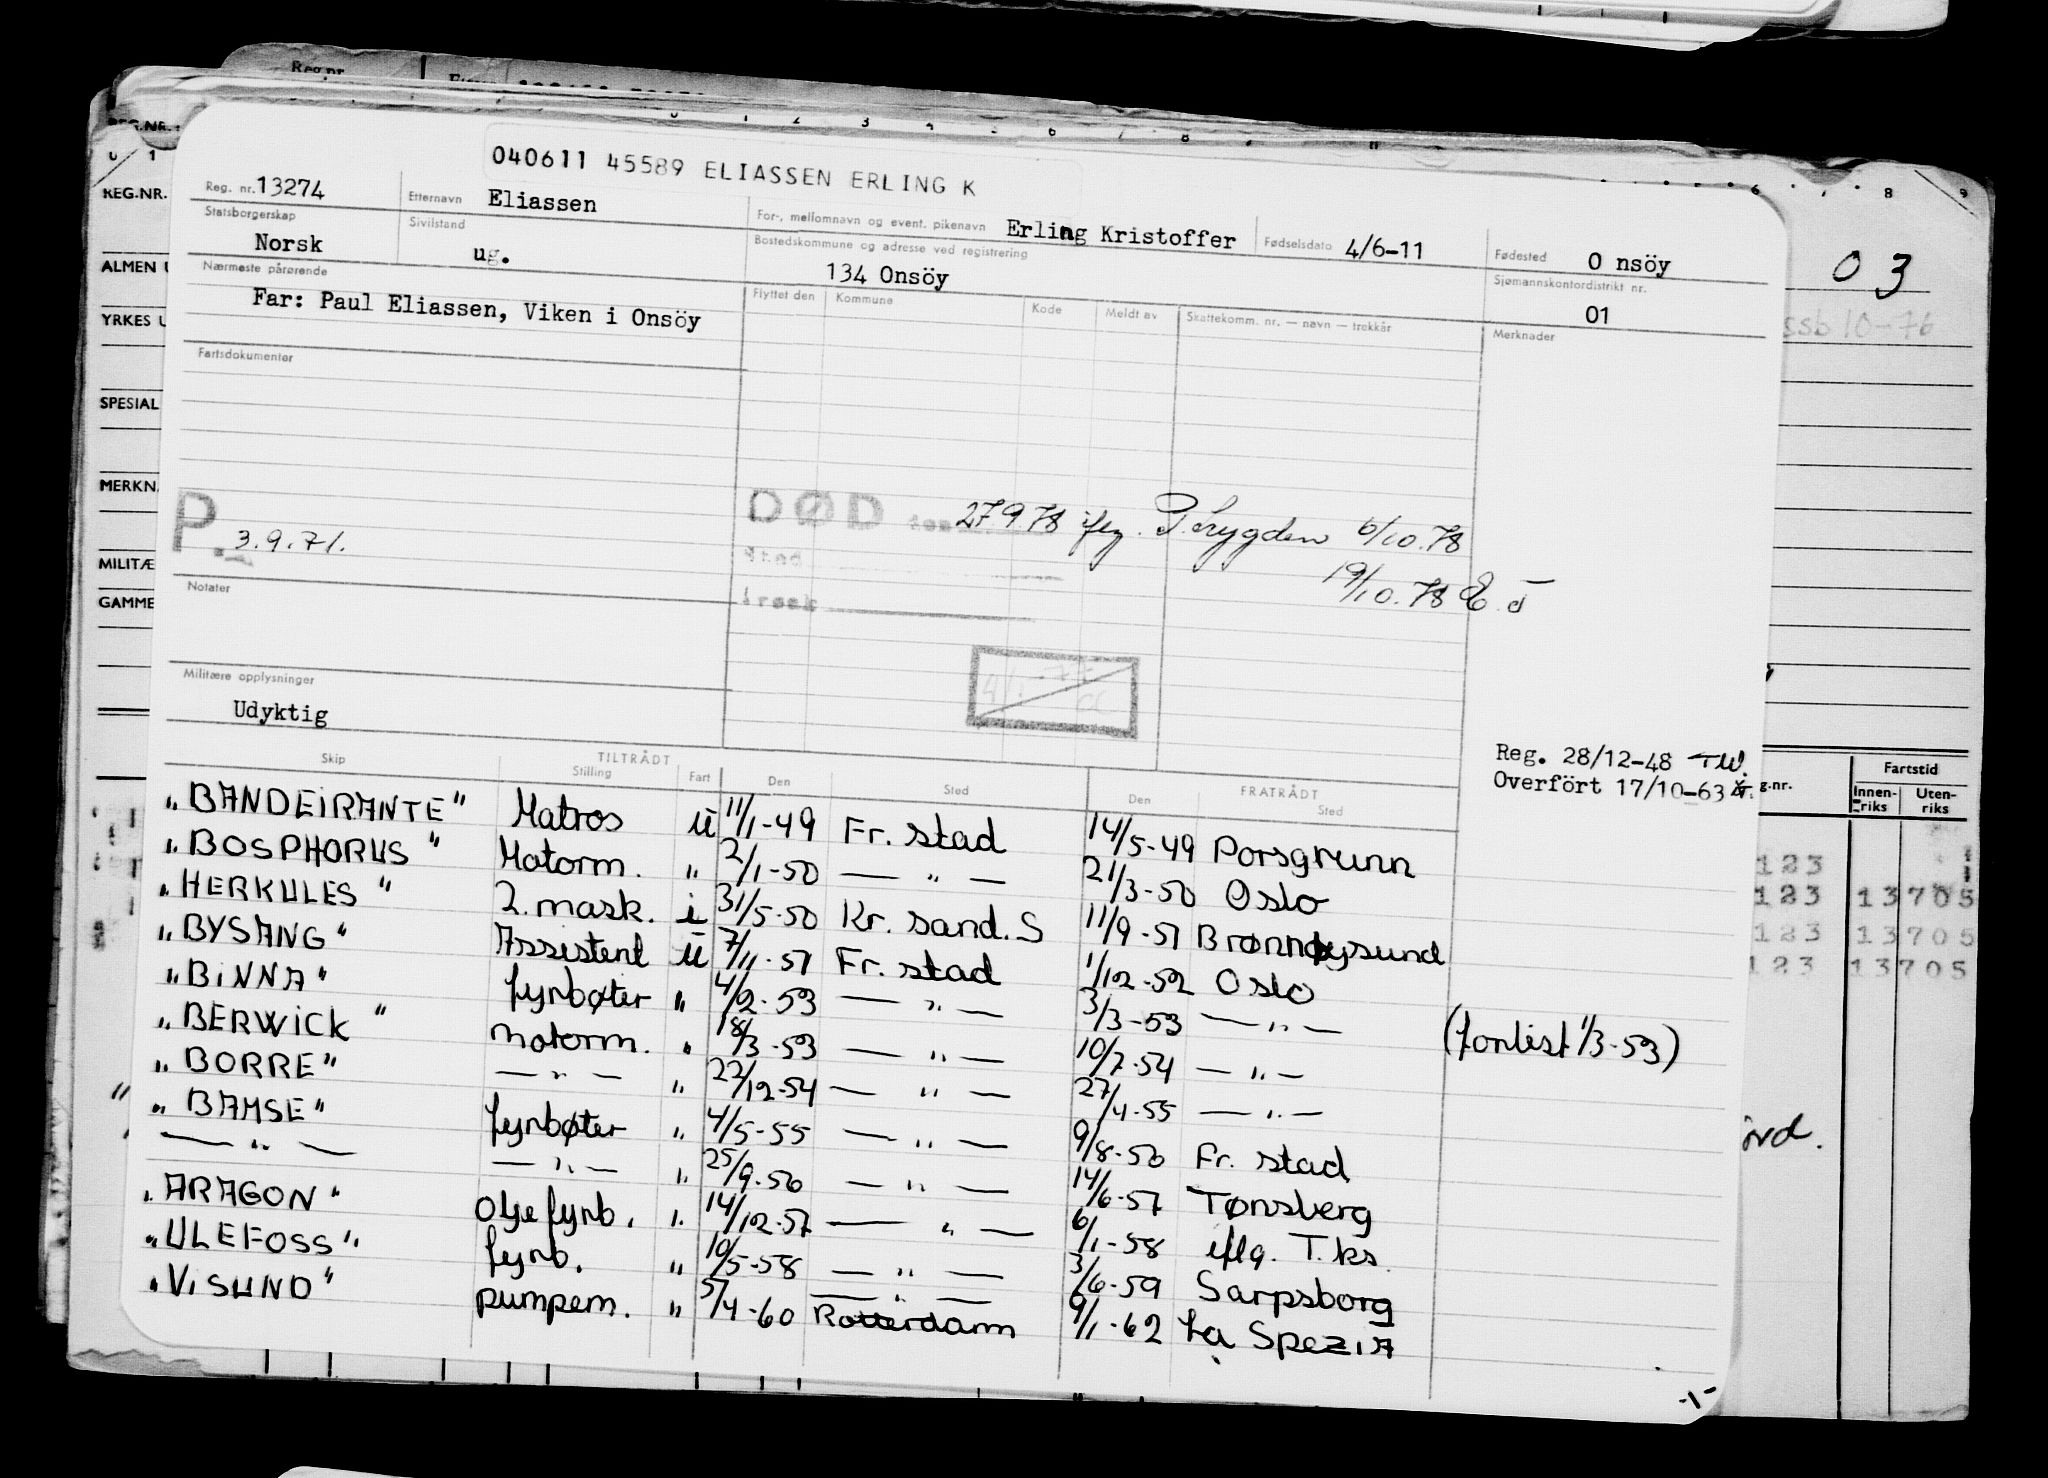 040611 45589 ELIASSEN ERLING K
Reg. nr. 13274 Etternavn Eliassen For-, mellomnavn og event. pikenavn Erling Kristoffer Fødselsdato 4/6-11 Fødested O nsöy
Statsborgerskap Norsk Sivilstand ug. Bostedskommune og adresse ved registrering 134 Onsöy Sjømannskontordistrikt nr. 01
Nærmeste pårørende Flyttet den Kommune Kode Meldt av Skattekomm. nr. — navn — trekkår Merknader
Far: Paul Eliassen, Viken i Onsöy
Fartsdokumenter
P. 3.9.71.
DØD 27 9 78 iflg. P. trygden 6/10.78
sted
årsak
19/10.78
Notater
Militære opplysninger
Udyktig
Reg. 28/12-48 TW.
Overfört 17/10-63
Skip TILTRÅDT Stilling Fart Den Sted FRATRÅDT Den Sted
"BANDEIRANTE" Matros u 11/1-49 Fr. stad 14/5-49 Porsgrunn
"BOSPHORUS" Motorm. " 2/1-50 — " — 21/3-50 Oslo
"HERKULES" 2. mask. i 31/5-50 Kr. sand. S 11/9-51 Brønnøysund
"BYSANG" Assistent u 7/11-51 Fr. stad 1/12-52 Oslo
"BINNA" fyrbøter " 4/2-53 — " — 3/3-53 — " — (forlist 1/3-53)
"BERWICK" motorm. " 18/3-53 — " — 10/7-54 — " —
"BORRE" — " — " 22/12-54 — " — 27/4-55 — " —
"BAMSE" fyrbøter " 4/5-55 — " — 9/8-56 Fr. stad
— " — — " — " 25/9-56 — " — 14/6-57 Tønsberg
"ARAGON" oljefyrb. " 14/12-57 — " — 6/1-58 iflg. T.ks.
"ULEFOSS" fyrb. " 10/5-58 — " — 3/6-59 Sarpsborg
"VISUND" pumpem. " 5/4-60 — " — Rotterdam 9/1-62 La SpeziA
-1-
Reg.nr.
REG.NR.
REG.NR.
ALMEN U
YRKES U
SPESIAL
MERKN.
MILITÆ
GAMME
03
10-76
g.nr. Fartstid
Innenriks Utenriks
123
123 13705
123 13705
123 13705